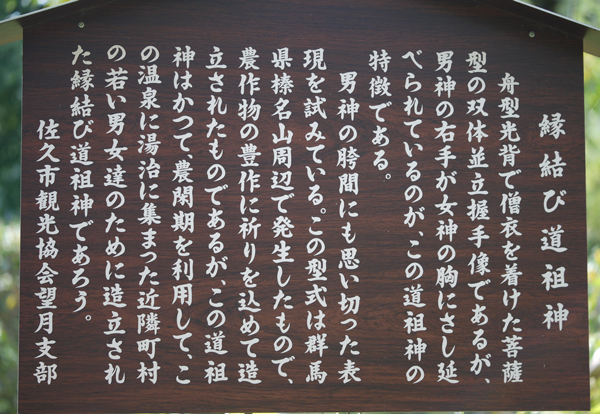 縁結び道祖神
舟型光背で僧衣を着けた菩薩
型の双体並立握手像であるが、
男神の右手が女神の胸にさし延
べられているのが、この道祖神の
特徴である。
男神の胯間にも思い切った表
現を試みている。この型式は群馬
県榛名山周辺で発生したもので、
農作物の豊作に祈りを込めて造
立されたものであるが、この道祖
神はかつて、農閑期を利用して、こ
の温泉に湯治に集まった近隣町村
の若い男女達のために造立され
た縁結び道祖神であろう。
佐久市観光協会望月支部